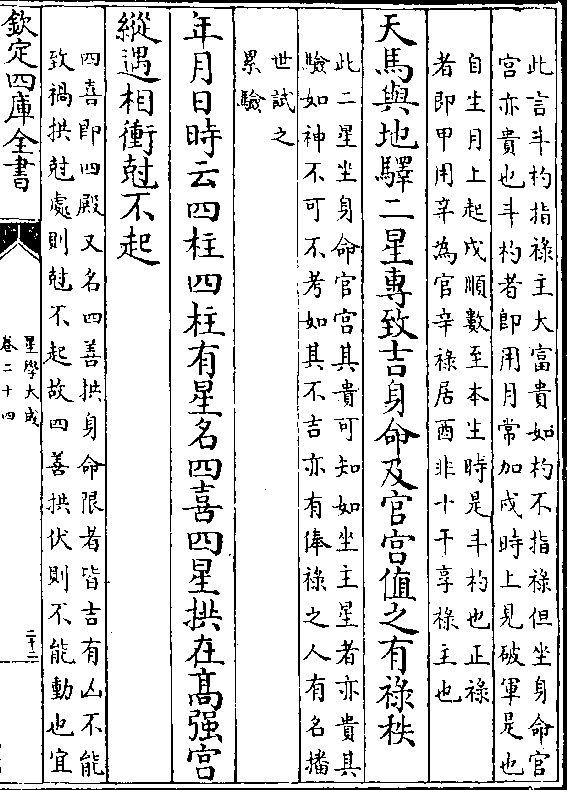 此言斗杓指祿主大富貴如杓不指祿但坐身命官
宫亦貴也斗杓者即用月常加戍時上見破軍是也
自生月上起戍順數至本生時是斗杓也正祿
者即甲用辛為官辛祿居酉非十干享祿主也
天馬與地驛二星專致吉身命及官宫值之有祿秩
此二星坐身命官宫其貴可知如坐主星者亦貴其
驗如神不可不考如其不吉亦有俸祿之人有名播
世試之
累驗
年月日時云四柱四柱有星名四喜四星拱在髙强宫
縱遇相衝尅不起
四喜即四殿又名四善拱身命限者皆吉有凶不能
致禍拱尅處則尅不起故四善拱伏則不能動也宜
欽定四庫全書
星學大成
卷二十四
二十三